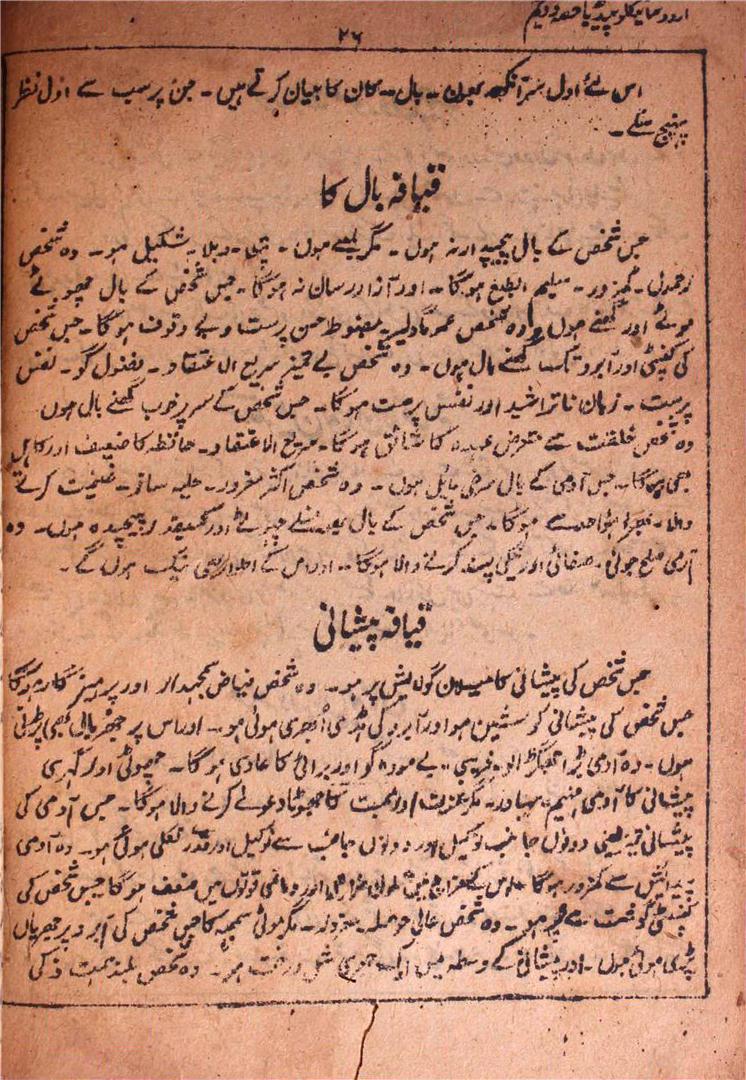 اردو سائیکلوپیڈیا حصہ دویم
۲۶
اس لئے اول سر آنکھ بھون ۔ بال ۔ کان کا بیان کرتے ہیں ۔ جن پر سب سے اول نظر
پہنچ سکے ۔
قیافہ بال کا
جس شخص کے بال پیچیدار نہ ہوں ۔ مگر لمبے ہوں ۔ پتلا ۔ دبلا ۔ شکیل ہو ۔ وہ شخص
رحمدل ۔ کمزور ۔ سلیم الطبع ہوگا ۔ اور آزار رسان نہ ہوگا ۔ جس شخص کے بال چھوٹے
موٹے اور گھنے ہوں وہ شخص عموماً دلیر مضبوط حسن پرست و بے وقوف ہوگا ۔ جس شخص
کی کنپٹی اور آبرو تک گھنے بال ہوں ۔ وہ شخص بے تمیز سریع الاعتقاد ۔ فضول گو ۔ نفس
پرست ۔ زبان ناتراشید اور نفس پرست ہوگا ۔ جس شخص کے سر پر خوب گھنے بال ہوں
وہ شخص خلقت سے متعرض عہدہ کا شائق ہوگا ۔ سریع الاعتقاد ۔ حافظہ کا ضعیف اور کاہل
بھی ہوگا ۔ جس آدمی کے بال سرخی مائل ہوں ۔ وہ شخص اکثر مغرور ۔ حلیہ ساز ۔ غنیمت کرنے
والا ۔ بھرا ہوا حسد سے ہوگا ۔ جس شخص کے بال بھورے چوڑے اور کسیقدر پیچیدہ ہوں ۔ وہ
آدمی صلح جوئی ۔ صفائی اور نیکی پسند کرنے والا ہوگا ۔ اور اس کے اطوار بھی نیک ہوں گے ۔
قیافہ پیشانی
جس شخص کی پیشانی کا میلان گولایش پر ہو ۔ وہ شخص فیاض سمجہدار اور پرہیزگار ہوگا
جس شخص کی پیشانی کو سشین ہو اور آبرو کی ہڈی اُبھری ہوئی ہو ۔ اور اس پر جھریاں بھی پڑتی
ہوں ۔ وہ آدمی بڑا جھگڑالو ۔ فریبی ۔ بے مودہ گو اور برائی کا عادی ہوگا ۔ چھوٹی اور گہری
پیشانی کا آدمی فہیم ۔ بہادر ۔ مگر عزت اور محبت کا جھوٹا دعوے کرنے والا ہوگا ۔ جس آدمی کی
پیشانی یعنی دونوں جانب نوکیل اور دونوں جانب سے نوکیل اور قدر نکلی ہوئی ہو ۔ وہ آدمی
پیدائش سے کمزور ہوگا اس کے مزاج میں اور دماغی قوتوں میں ضعف ہوگا جس شخص کی
کنپٹی گوشت سے پر ہو ۔ وہ شخص عالی حوصلہ مغرور ۔ مگر موٹی سمجہ کا جس شخص کی آبرو پر جھریاں
پڑی ہوئی ہوں ۔ اور پیشانی کے وسط میں ایک جھری مثل درخت ہو ۔ وہ شخص بلند ہمت ذکی